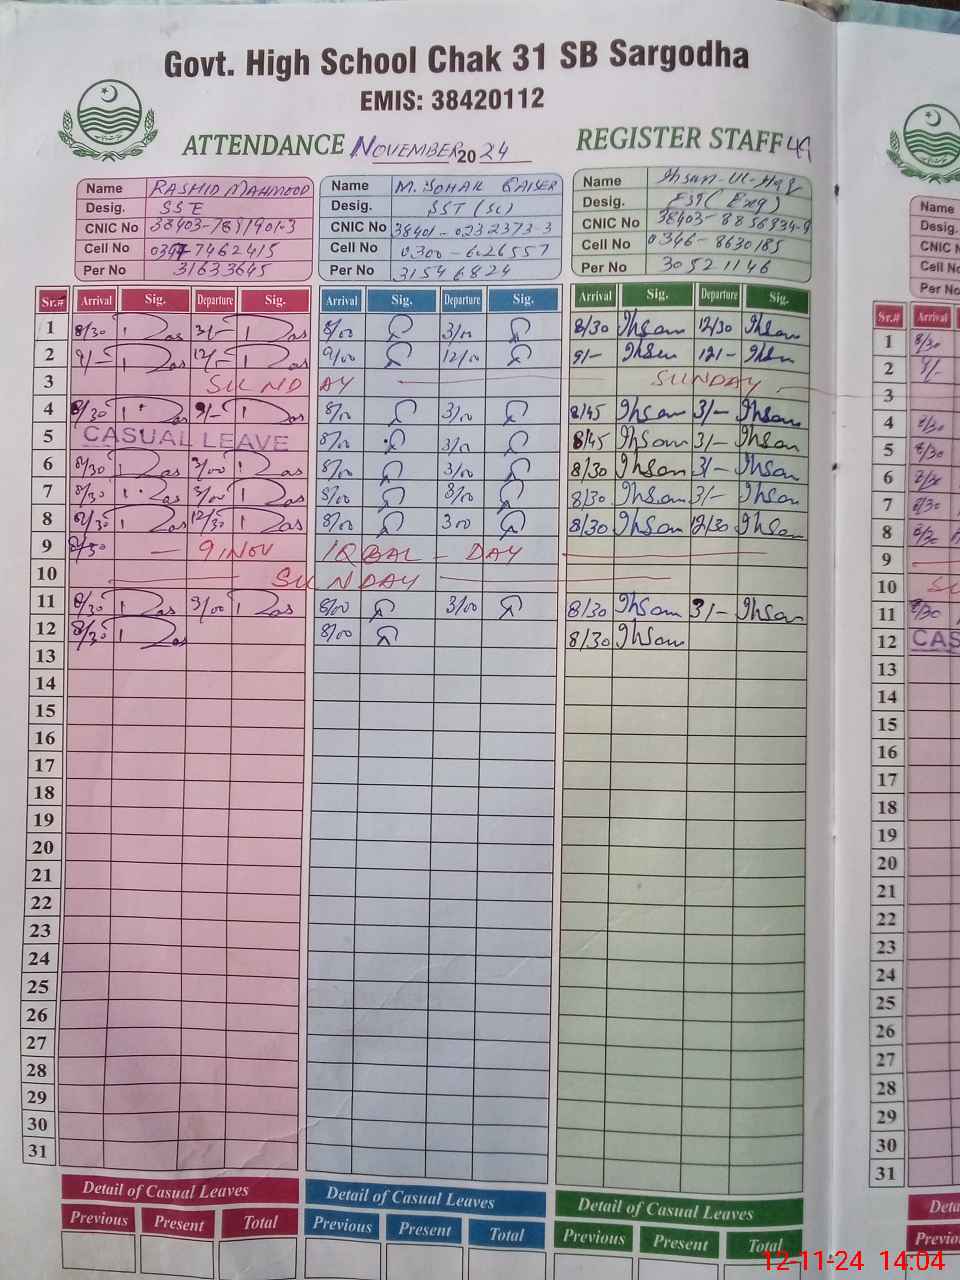 Govt. High School Chak 31 SB Sargodha
EMIS: 38420112
ATTENDANCE NOVEMBER 2024 REGISTER STAFF
Name RASHID MAHMOOD
Desig. SSE
CNIC No
Cell No 7462415
Per No 31633645
Name M. SOHAIL QAISER
Desig. SST (Sc)
CNIC No 38401-0232373-3
Cell No 0300-6026557
Per No 31546824
Name Ihsan-Ul-Haq
Desig. EST (Eng)
CNIC No
Cell No 0346-8630185
Per No 30521146
Sr.# Arrival Sig. Departure Sig. Arrival Sig. Departure Sig. Arrival Sig. Departure Sig.
1 8/30 3/- 8/00 3/00 8/30 Ihsan 12/30 Ihsan
2 9/- 12/- 9/00 12/00 9/- Ihsan 12/- Ihsan
3 SUNDAY SUNDAY
4 8/30 8/00 3/00 8/45 Ihsan 3/- Ihsan
5 CASUAL LEAVE 8/00 3/00 8/45 Ihsan 3/- Ihsan
6 8/30 3/00 8/00 3/00 8/30 Ihsan 3/- Ihsan
7 8/30 3/00 8/00 8/30 Ihsan 3/- Ihsan
8 8/30 12/30 8/00 300 8/30 Ihsan 12/30 Ihsan
9 8/30 — 9 NOV IQBAL - DAY
10 SUNDAY
11 8/30 3/00 8/00 3/00 8/30 Ihsan 3/- Ihsan
12 8/30 8/00 8/30 Ihsan
13
14
15
16
17
18
19
20
21
22
23
24
25
26
27
28
29
30
31
Detail of Casual Leaves Detail of Casual Leaves Detail of Casual Leaves
Previous Present Total Previous Present Total Previous Present Total
Name
Desig.
CNIC N
Cell No
Per No
Sr.# Arrival
1 8/30
2 9/-
3
4 8/30
5 8/30
6 8/30
7 8/30
8 8/30
9
10 SU
11 8/30
12 CAS
13
14
15
16
17
18
19
20
21
22
23
24
25
26
27
28
29
30
31
Deta
Previo
12-11-24 14:04